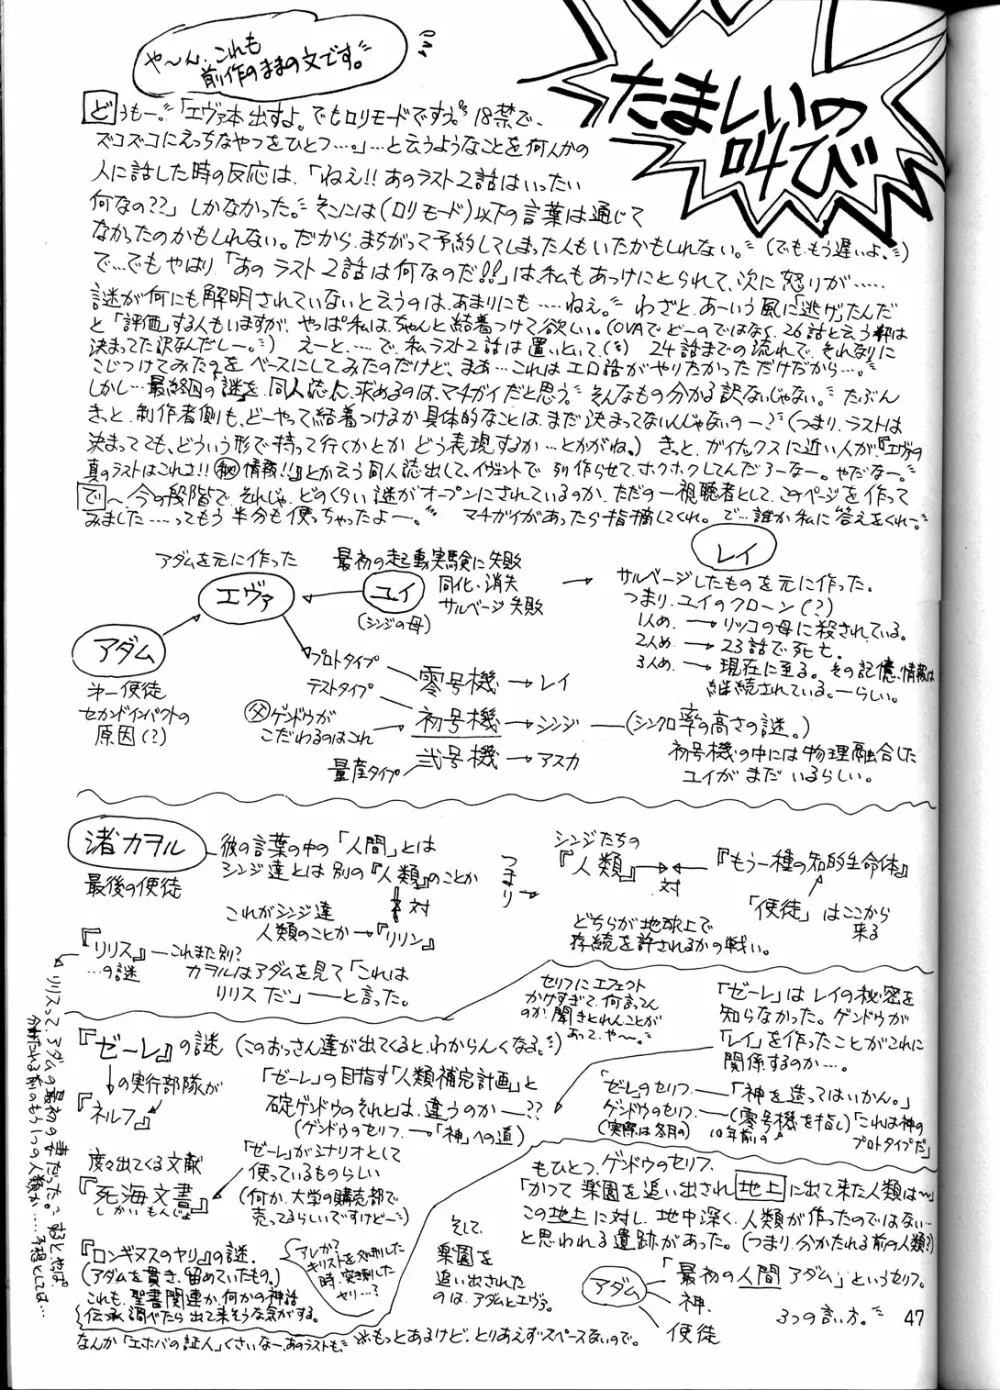 や〜ん、これも
前作のままの文です。
たましいの
叫び
どうもー。「エヴァ本出すよ。でもロリモードですヮ。18禁で、
ズコズコにえっちなやつをひとつ…。」…と云うようなことを何人かの
人に話した時の反応は、「ねえ!!あのラスト2話はいったい
何なの??」しかなかった。そこには(ロリモード)以下の言葉は通じて
なかったのかもしれない。だから、まちがって予約してしまった人もいたかもしれない。(でも、もう遅いよ。)
で…でもやはり「あのラスト2話は何なのだ!!」は、私もあっけにとられて、次に怒りが……
謎が何にも解明されていないと云うのは、あまりにも……ねえ。わざと、あーいう風に「逃げ」たんだ
と「評価」する人もいますが、やっぱ私は、ちゃんと結着つけて欲しい。(OVAでどーのではなく、26話と云う枠は
決まってた訳なんだしー。)えーと、…で、私、ラスト2話は置いといて、24話までの流れで、それなりに
こじつけてみたのをベースにしてみたのだけど、まあ…これはエロ話がやりたかっただけだから…。
しかし…最終回の謎を、同人誌に求めるのは、マチガイだと思う。そんなもの分かる訳ないじゃない。たぶん
きっと、制作者側も、どーやって結着つけるか具体的なことは、まだ決まってないんじゃないのー?(つまり、ラストは
決まってても、どういう形で持って行くかとか どう表現するか…とかがね。)きっと、ガイナックスに近い人が『エヴァの
真のラストはこれさ!!㊙情報!!』とか云う同人誌出して、イヴェントで列作らせて、ホクホクしてんだろーなー。やだなー。
で〜今の段階で、それじゃ、どのくらい謎がオープンにされているのか、ただの一視聴者として、このページを作って
みました……ってもう半分も使っちゃったよー。マチガイがあったら指摘してくれ。で…誰か私に答えをくれー。
アダムを元に作った
エヴァ
最初の起動実験に失敗
ユイ
同化・消失
サルベージ失敗
(シンジの母)
レイ
サルベージしたものを元に作った。
つまり、ユイのクローン(?)
1人め、→リツコの母に殺されている。
2人め、→23話で死亡。
3人め、→現在に至る。その記憶、情報は
継続されている。ーらしい。
アダム
第一使徒
セカンドインパクトの
原因(?)
プロトタイプ 零号機→レイ
テストタイプ
父ゲンドウが
こだわるのはこれ
初号機→シンジ
(シンクロ率の高さの謎。)
初号機の中には物理融合した
ユイがまだいるらしい。
量産タイプ 弐号機→アスカ
渚カヲル
最後の使徒
彼の言葉の中の「人間」とは
シンジ達とは別の『人類』のことか
対
これがシンジ達
人類のことか→『リリン』
つまり
シンジたちの
『人類』
対
『もう一種の知的生命体』
「使徒」はここから
来る
どちらが地球上で
存続を許されるかの戦い。
『リリス』―これまた別?
…の謎
カヲルはアダムを見て「これは
リリスだ」――と言った。
リリスって、アダムの最初の妻だった。あと、さっぱ
分かたれる前のもう1つの人類か……予想としては…
『ゼーレ』の謎(このおっさん達が出てくると、わからんくなる。)
の実行部隊が
『ネルフ』
セリフにエフェクト
かけすぎで、何言ってん
のか、聞きとれんことが
あって、や〜。
「ゼーレ」はレイの秘密を
知らなかった。ゲンドウが
「レイ」を作ったことがこれに
関係するのか…。
「ゼーレ」の目指す「人類補完計画」と
碇ゲンドウのそれとは、違うのか―??
(ゲンドウのセリフ、―「神」への道)
「ゼーレ」のセリフ、―「神を造ってはいかん。」
ゲンドウのセリフ、―(零号機を指し)「これは神の
(実際は冬月の) 10年前の プロトタイプだ」
度々出てくる文献
『死海文書』
しかいもんじょ
「ゼーレ」がシナリオとして
使っているものらしい
(何か、大学の購売部で
売ってるらしいですけどー)
『ロンギヌスのヤリ』の謎、
(アダムを貫き、留めていたもの。)
これも、聖書関連か、何かの神話
伝承調べたら出て来そうな気がする。
アレか?
キリストを処刑した
時、突き刺した
ヤリ…?
そして、
楽園を
追い出された
のは、アダムとエヴァ。
もひとつ、ゲンドウのセリフ、
「かつて楽園を追い出され地上に出て来た人類は〜」
この地上に対し、地中深く、人類が作ったのではない…
と思われる遺跡があった。(つまり、分かたれる前の人類?)
アダム
「最初の人間アダム」というセリフ。
神、
使徒
3つの言い方。
なんか「エホバの証人」くさいなー、あのラストも、
※もっとあるけど、とりあえずスペースないので。
47